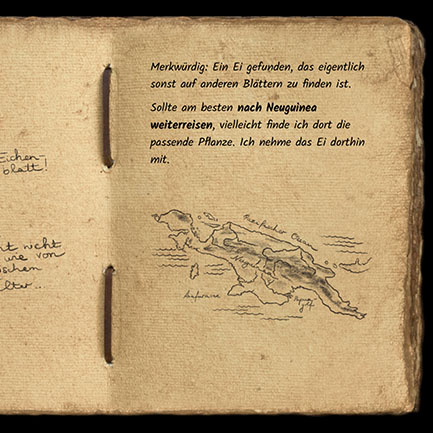 Eichen-
blatt!
nt nicht
wie von
schen
lter..
Merkwürdig: Ein Ei gefunden, das eigentlich
sonst auf anderen Blättern zu finden ist.
Sollte am besten nach Neuguinea
weiterreisen, vielleicht finde ich dort die
passende Pflanze. Ich nehme das Ei dorthin
mit.
Pazifischer Ozean